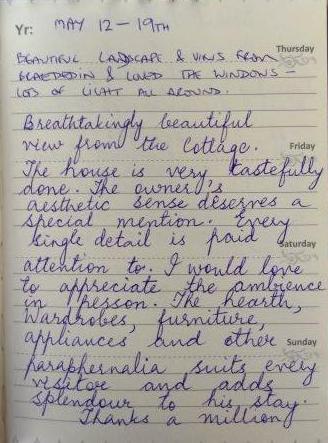 Yr: MAY 12 - 19TH
Thursday
BEAUTIFUL LANDSCAPE & VIEWS FROM
& LOVED THE WINDOWS -
LOTS OF LIGHT ALL AROUND.
Breathtakingly beautiful
view from the Cottage.
Friday
The house is very tastefully
done. The owner's
aesthetic sense deserves a
special mention. Every
single detail is paid
Saturday
attention to. I would love
to appreciate the ambience
in person. The hearth,
Wardrobes, furniture,
appliances and other
Sunday
paraphernalia suits every
visitor and adds
splendour to his stay.
Thanks a million